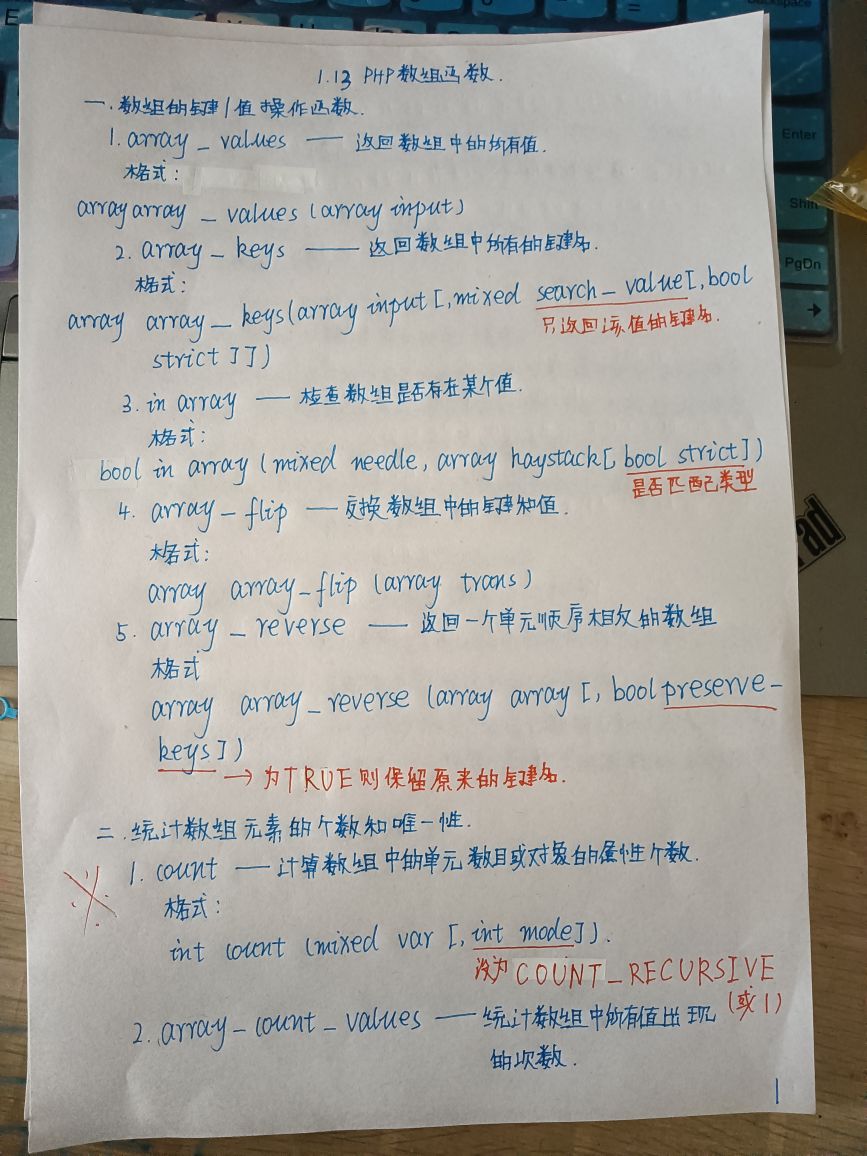 1.13 PHP数组函数.
一.数组的键/值操作函数.
1. array_values — 返回数组中的所有值.
格式:
array array_values (array input)
2. array_keys —— 返回数组中所有的键名.
格式:
array array_keys(array input [,mixed search_value[,bool
只返回该值的键名.
strict]])
3. in array — 检查数组是否存在某个值.
格式:
bool in array (mixed needle, array haystack[, bool strict])
是否匹配类型
4. array_flip — 交换数组中的键和值.
格式:
array array_flip (array trans)
5. array_reverse — 返回一个单元顺序相反的数组
格式
array array_reverse (array array [, bool preserve-
keys])
→ 为TRUE则保留原来的键名.
二.统计数组元素的个数和唯一性.
1. count — 计算数组中的单元数目或对象的属性个数.
格式:
int count (mixed var [, int mode]).
设为COUNT_RECURSIVE
(或1)
2. array_count_values — 统计数组中所有值出现
的次数.
1
Backspace
Enter
Shift
PgDn